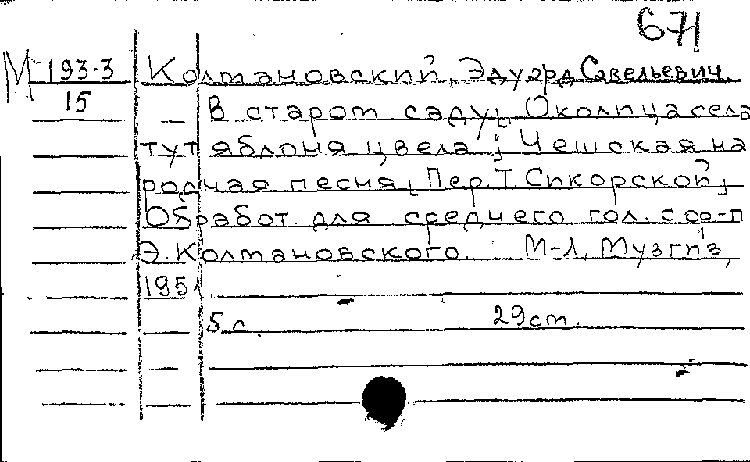 671
М 193-3 Колтановский, Эдуард Савельевич.
15 В старом саду; Околица села
тут яблоня цвела; Чешская на
родная песня; Пер. Т. Сикорской;
Обработ. для среднего гол. с со-п
Э. Колтановского. М-Л, Музгиз,
1951
5 л. 29 cm.